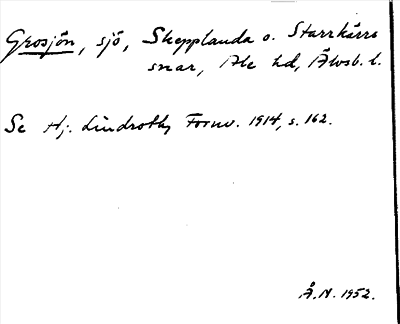 Grosjön, sjö, Skepplanda o. Starrkärrs
snar, Ale hd, Älvsb. l.
Se Hj. Lindroth, Fornv. 1914, s. 162.
Å.N. 1952.